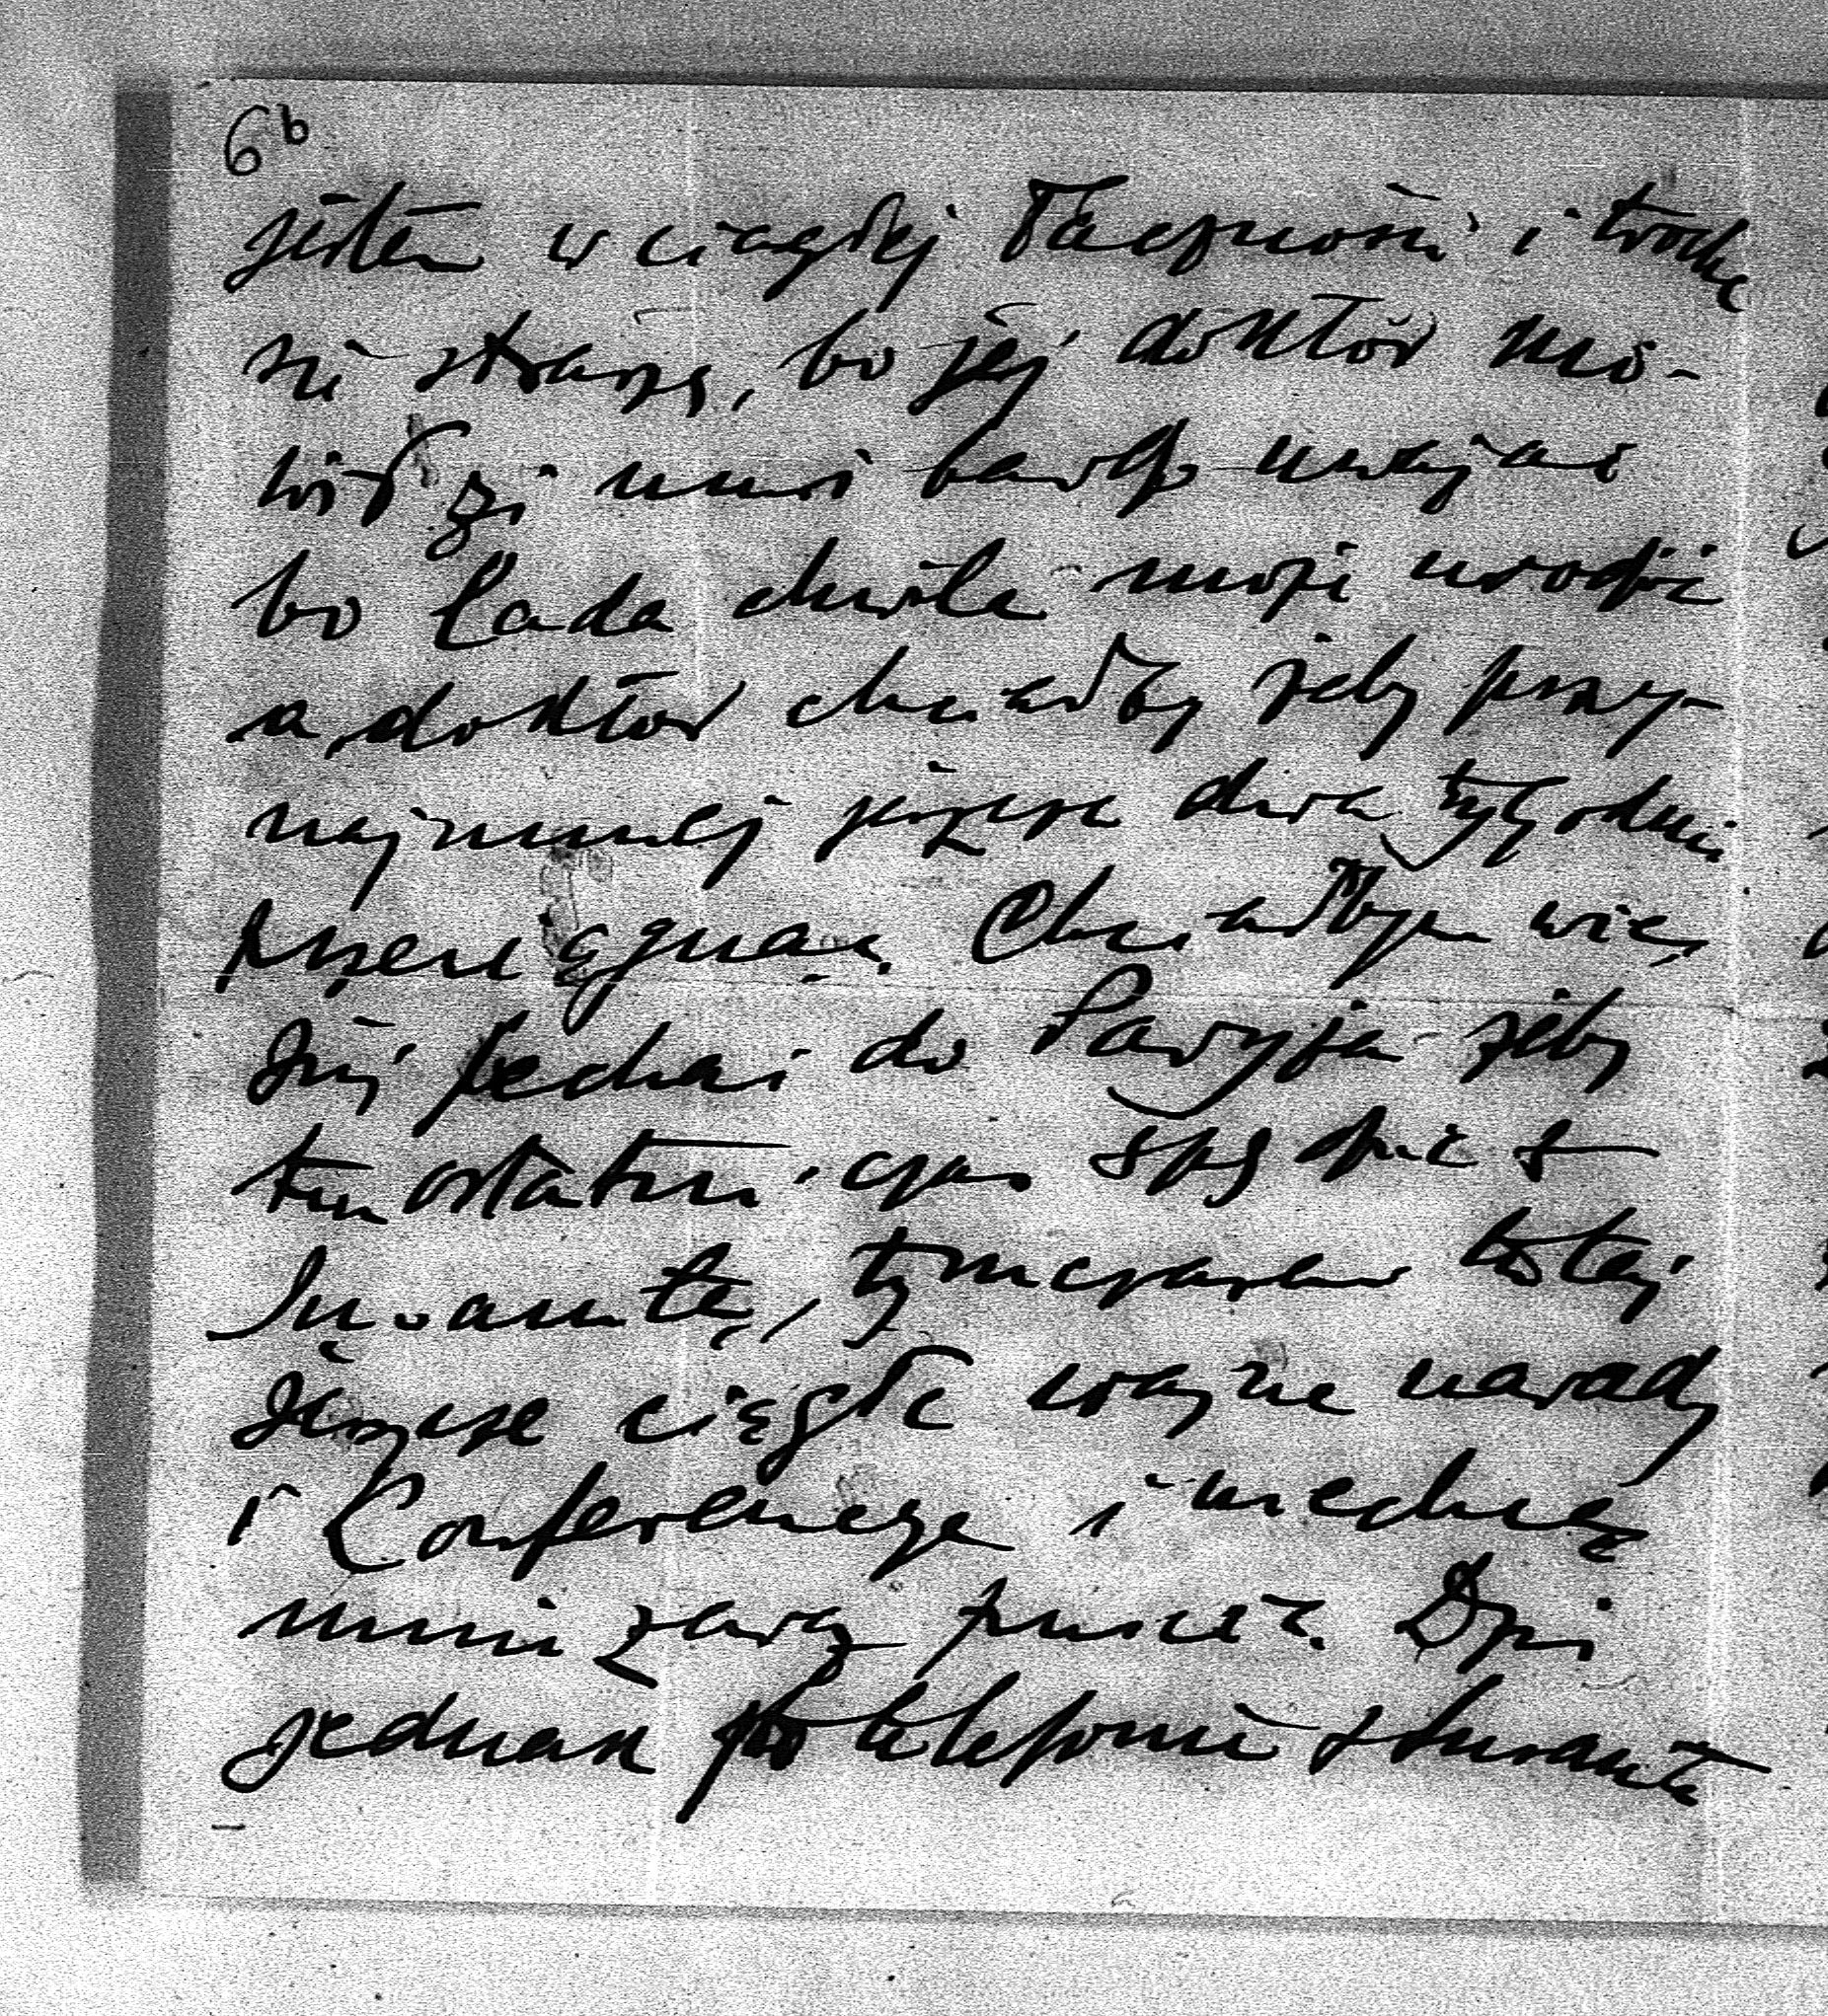 6b
jestem w ciągłej łączności i trochę
się straszę, bo jej doktór mó-
wił że musi bardzo uważać
bo lada chwila może urodzić
a doktór chciałby żeby przy-
najmniej jeszcze dwa tygodnie
przeciągnąć. Chciałbym więc
już jechać do Paryża żeby
ten ostatni czas spędzić z
tymczasem tutaj
jeszcze ciągle ważne narady
i Conferencye i niechcą
mnie zaraz puścić. Dziś
jednak po telefonie z